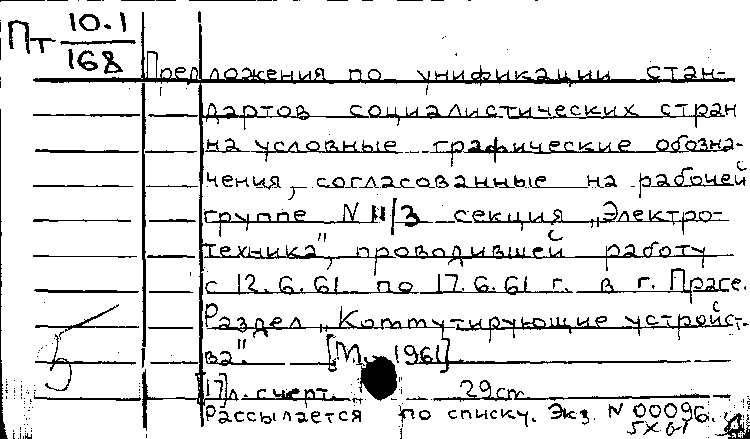 Пт 10.1
168
Предложения по унификации стан-
дартов социалистических стран
на условные графические обозна-
чения, согласованные на рабочей
группе N II/3 секция „Электро-
техника", проводившей работу
с 12.6.61 по 17.6.61 г. в г. Праге.
Раздел „Коммутирующие устройст-
ва". [М., 1961].
5
[17]л. с черт. 29см
Рассылается по списку. Экз. N 00096.
5X61